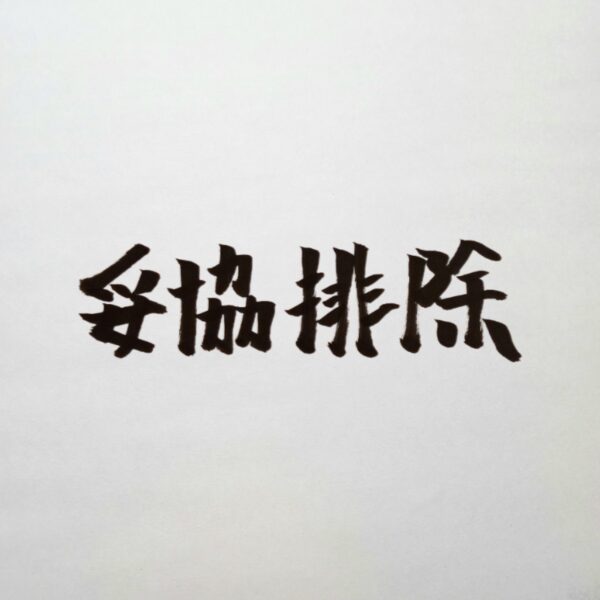 妥協排除